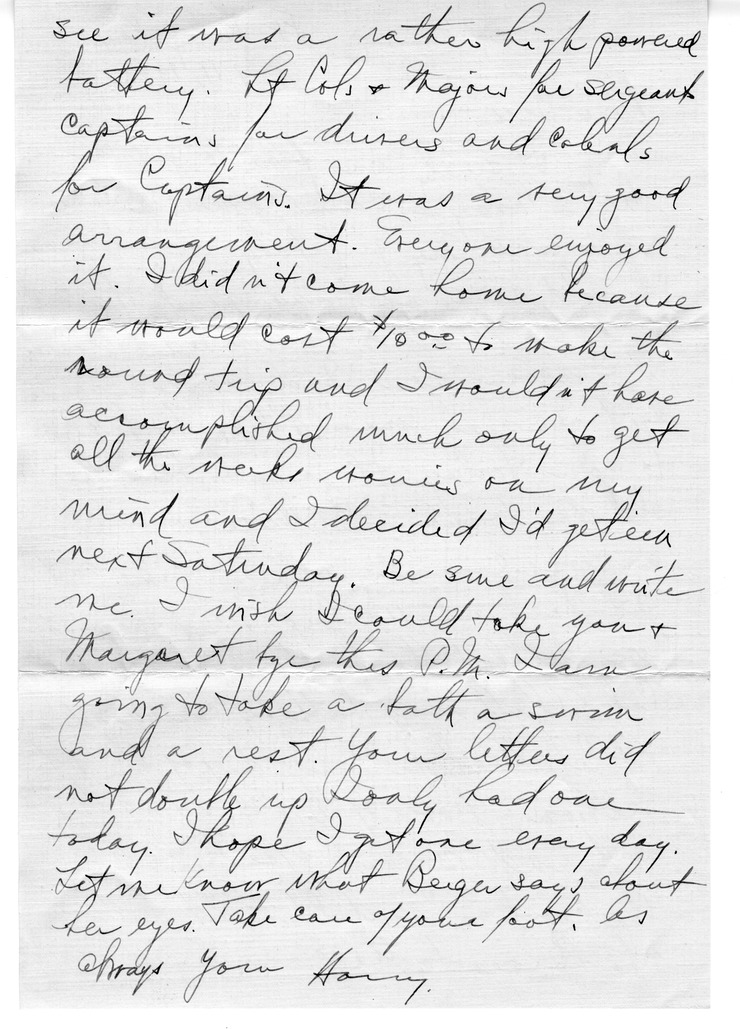 see it was a rather high powered
battery. Lt Cols & Majors for sergeants
captains for drivers and colonels
for Captains. It was a very good
arrangement. Everyone enjoyed
it. I didn't come home because
it would cost $10.00 to make the
round trip and I wouldn't have
accomplished much only to get
all the weeks worries on my
mind and I decided I'd get em
next Saturday. Be sure and write
me. I wish I could take you &
Margaret bye this P.M. I am
going to take a bath a swim
and a rest. Your letters did
not double up I only had one
today. I hope I get one every day.
Let me know what Berger says about
her eyes. Take care of your foot. As
always Your Harry.